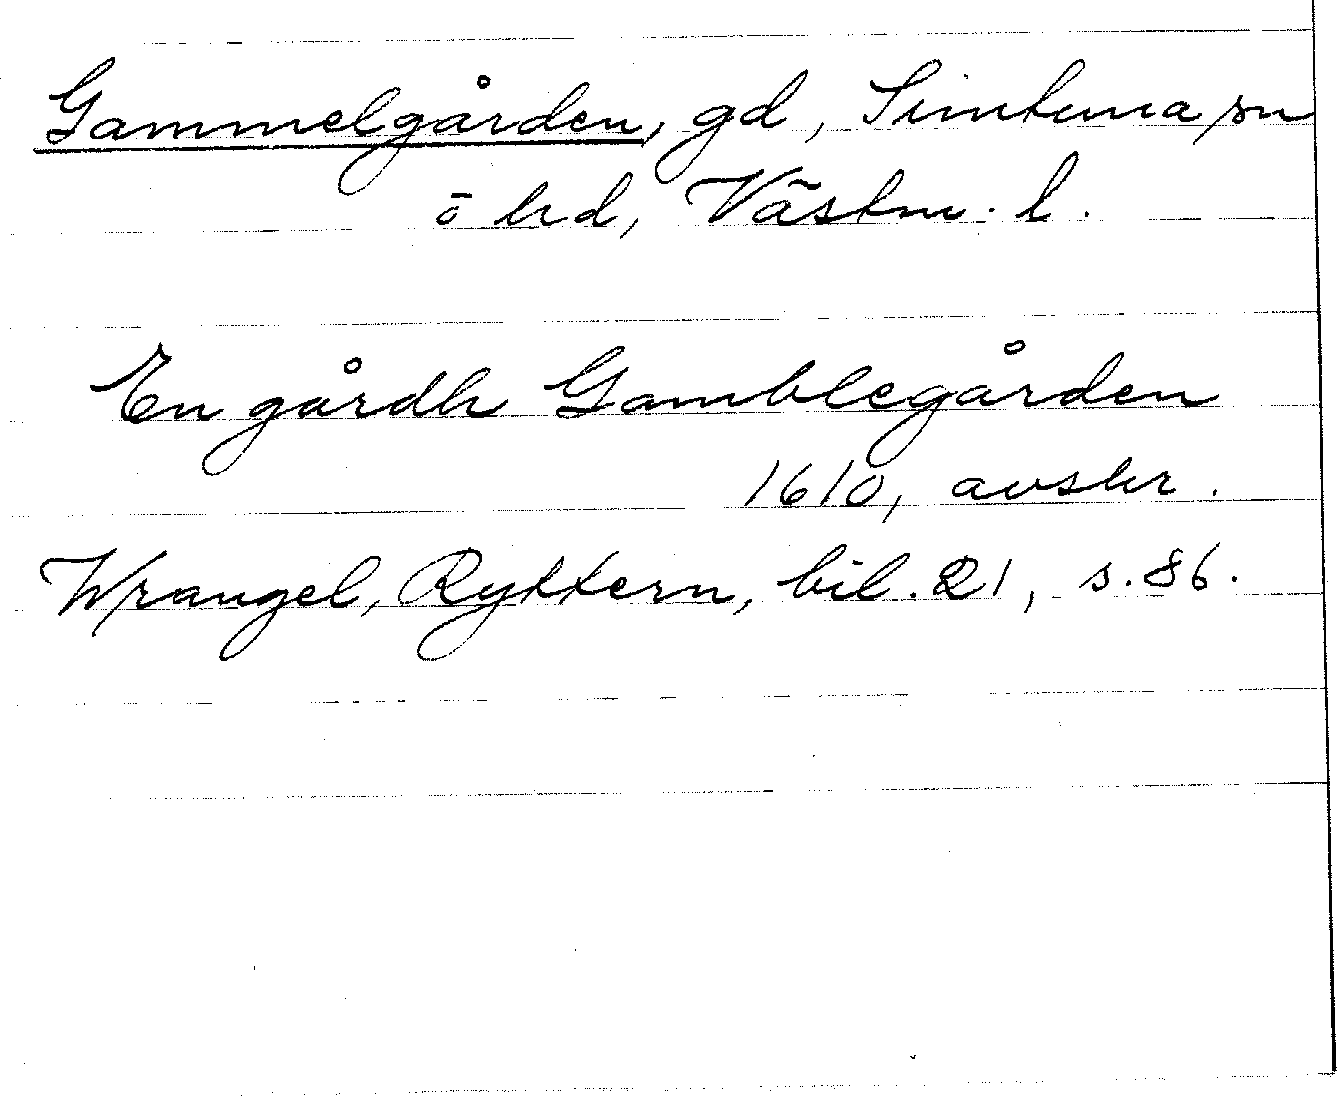 Gammelgården, gd, Simtuna sn
ö hd, Västm. l.
En gårdh Gamblegården
1610, avskr.
Wrangel, Ryttern, bil. 21, s. 86.